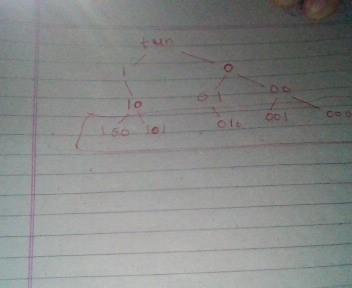 fun
1 0
10 01 00
100 101 010 001 000